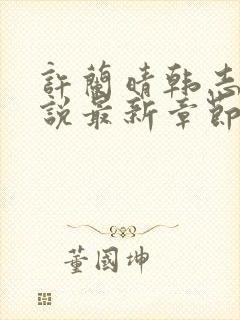 許蘭晴韩志
說最新章節
董國坤